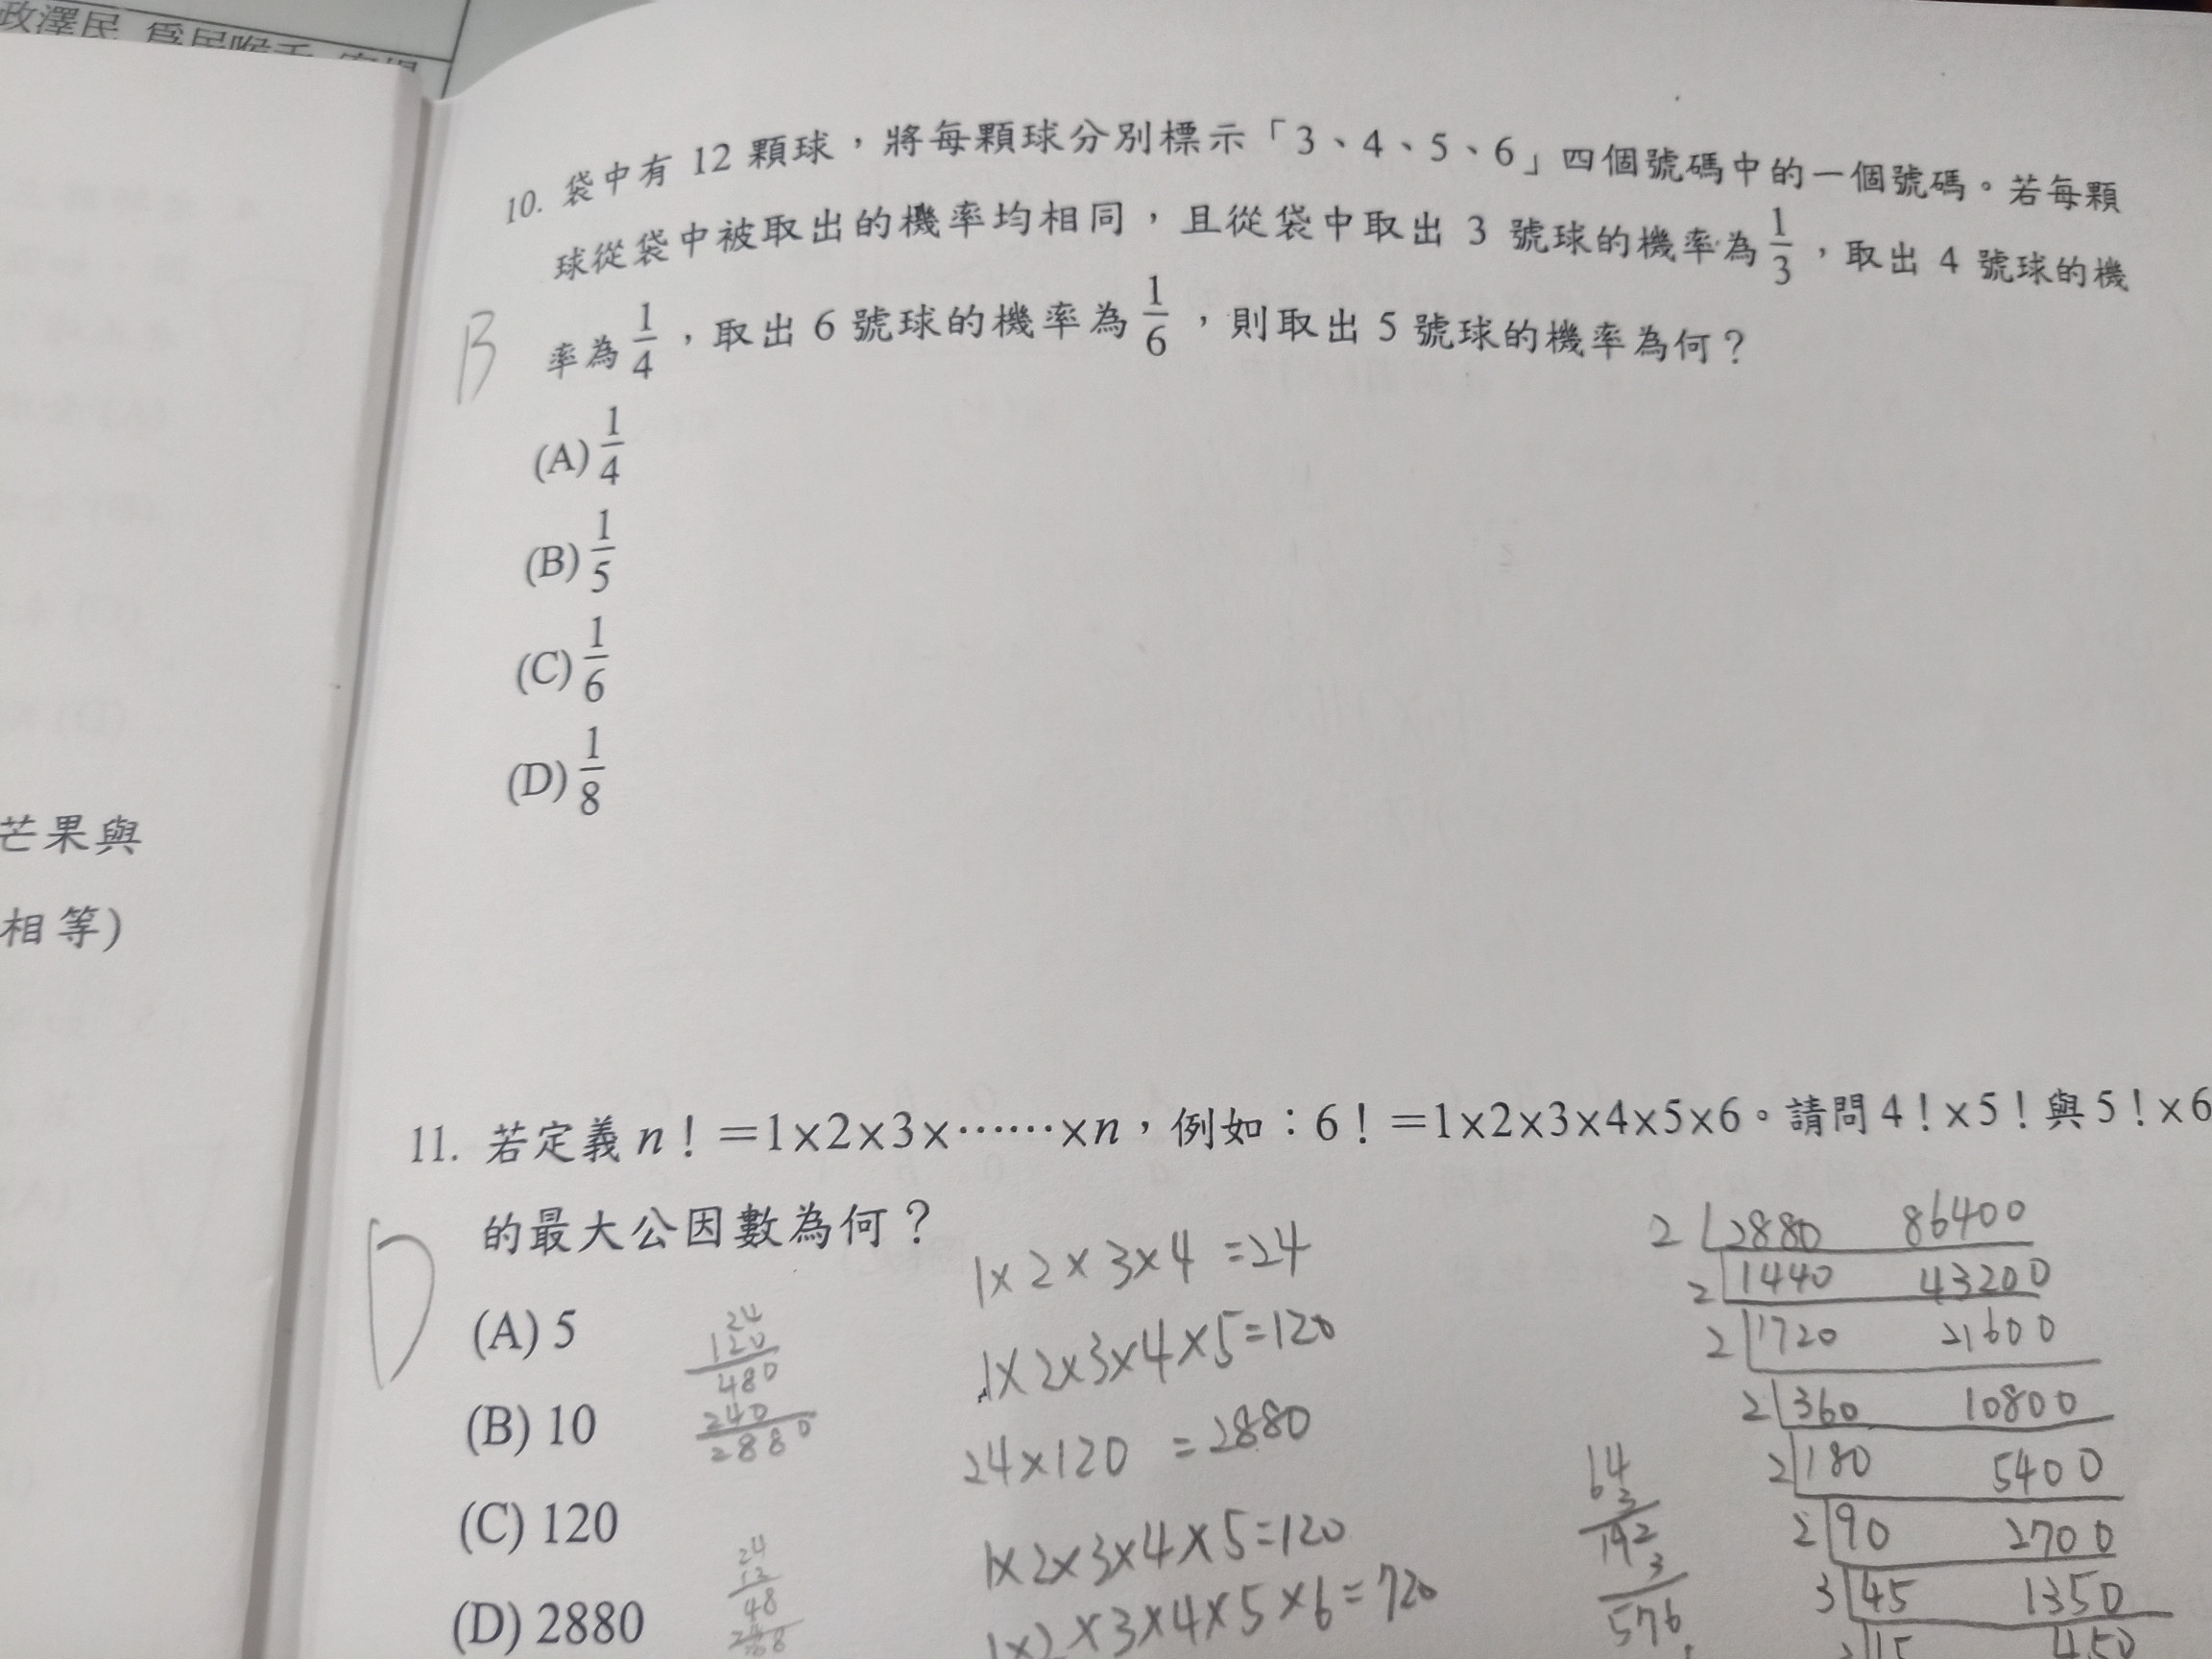 政澤民
芒果與
相等)
10. 袋中有 12 顆球，將每顆球分別標示「3、4、5、6」四個號碼中的一個號碼。若每顆
球從袋中被取出的機率均相同，且從袋中取出 3 號球的機率為 1/3，取出 4 號球的機
率為 1/4，取出 6 號球的機率為 1/6，則取出 5 號球的機率為何？
B
(A) 1/4
(B) 1/5
(C) 1/6
(D) 1/8
11. 若定義 n！＝1×2×3×……×n，例如：6！＝1×2×3×4×5×6。請問 4！×5！與 5！×6
的最大公因數為何？
D
(A) 5
(B) 10
(C) 120
(D) 2880
24
120
480
240
2880
24
12
48
1×2×3×4=24
1×2×3×4×5=120
24×120=2880
1×2×3×4×5=120
1×2×3×4×5×6=720
64
3
192
3
576
2 2880 86400
2 1440 43200
2 1720 21600
2 360 10800
2 180 5400
2 90 2700
3 45 1350
15 450